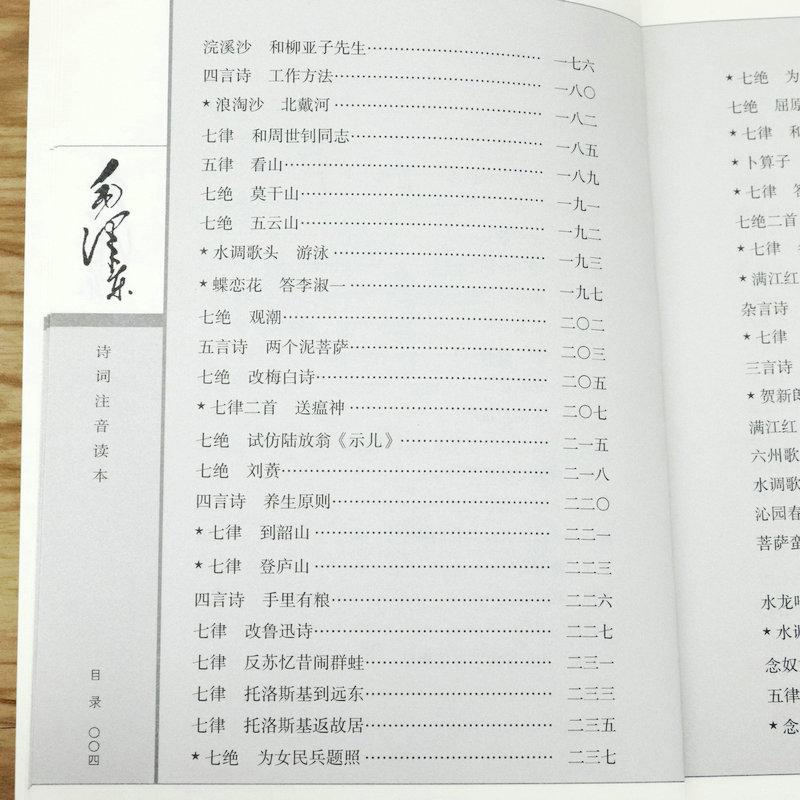 浣溪沙　和柳亚子先生……一七六
四言诗　工作方法……一八〇
★浪淘沙　北戴河……一八二
七律　和周世钊同志……一八五
五律　看山……一八九
七绝　莫干山……一九一
七绝　五云山……一九二
★水调歌头　游泳……一九三
★蝶恋花　答李淑一……一九七
七绝　观潮……二〇二
五言诗　两个泥菩萨……二〇三
七绝　改梅白诗……二〇五
★七律二首　送瘟神……二〇七
七绝　试仿陆放翁《示儿》……二一五
七绝　刘蕡……二一八
四言诗　养生原则……二二〇
★七律　到韶山……二二一
★七律　登庐山……二二三
四言诗　手里有粮……二二六
七律　改鲁迅诗……二二七
七律　反苏忆昔闹群蛙……二三一
七律　托洛斯基到远东……二三三
七律　托洛斯基返故居……二三五
★七绝　为女民兵题照……二三七
毛泽东
诗词注音读本
目录　〇〇四
★七绝　为
七绝　屈原
★七律　和
★卜算子
★七律　答
七绝二首
★七律
★满江红
杂言诗
★七律
三言诗
★贺新郎
满江红
六州歌
水调歌
沁园春
菩萨蛮
水龙吟
★水调
念奴
五律
★念